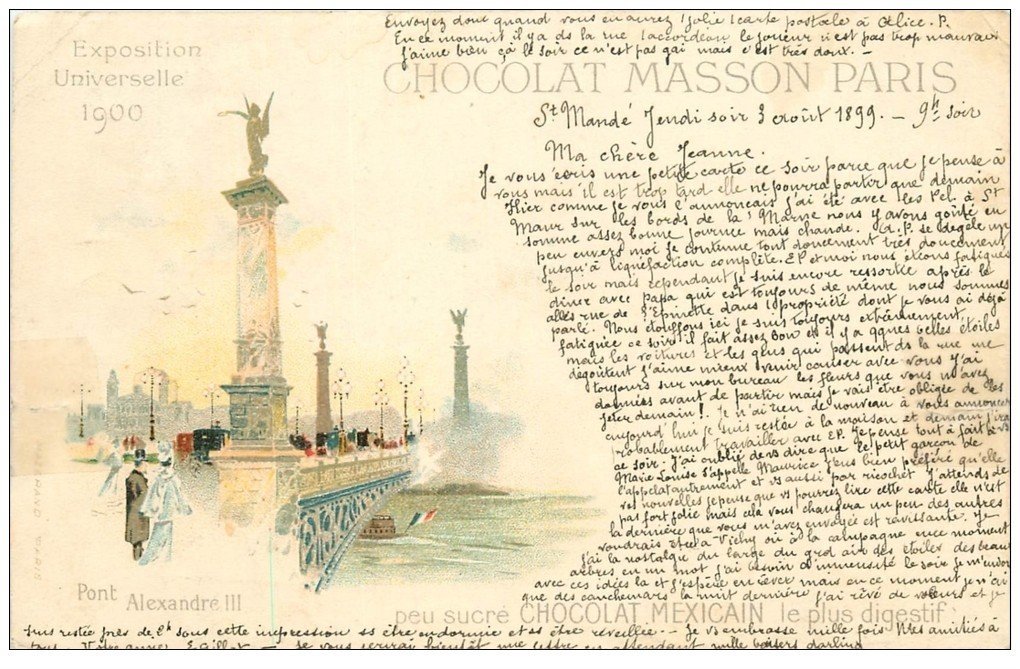 Envoyez donc quand vous en aurez 1 jolie 1 carte postale à Alice. P.
En ce moment il y a ds la rue 1 accordéon le joueur n'est pas trop mauvais
j'aime bien çà le soir ce n'est pas gai mais c'est très doux. —
Exposition
Universelle
1900
CHOCOLAT MASSON PARIS
St Mandé Jeudi soir 3 août 1899. — 9h soir
Ma chère Jeanne.
Je vous écris une petite carte ce soir parce que je pense à
vous mais il est trop tard elle ne pourra partir que demain
Hier comme je vous l'annonçais j'ai été avec les Pel. à St
Maur sur les bords de la Marne nous y avons goûté en
somme assez bonne journée mais chaude. A. P. se dégèle un
peu envers moi je continue tout doucement très doucement
jusqu'à liquéfaction complète. EP et moi nous étions fatigués
le soir mais cependant je suis encore ressortie après le
dîner avec papa qui est toujours de même nous sommes
allés rue de l'Epinette dans 1 propriété dont je vous ai déjà
parlé. Nous étouffons ici je suis toujours extrêmement
fatiguée ce soir il fait assez bon et il y a qques belles étoiles
mais les voitures et les gens qui passent ds la rue me
dégoûtent j'aime mieux venir causer avec vous j'ai
toujours sur mon bureau les fleurs que vous m'avez
données avant de partir mais je vais être obligée de les
jeter demain!. Je n'ai rien de nouveau à vous annoncer
aujourd'hui je suis restée à la maison et demain j'irai
probablement travailler avec EP. Je pense tout à fait à vs
ce soir. J'ai oublié de vs dire que le petit garçon de
Marie Louise s'appelle Maurice j'eus bien préféré qu'elle
l'appelât autrement et vs aussi par ricochet j'attends de
vos nouvelles je pense que vs pourrez lire cette carte elle n'est
pas fort jolie mais cela vous changera un peu des autres
la dernière que vous m'avez envoyée est ravissante. Je
voudrais être à Vichy ou à la campagne en ce moment
j'ai la nostalgie du large du grd air des étoiles des beaux
arbres en un mot j'ai besoin d'immensité le soir je m'endors
avec ces idées là et j'espère en rêver mais en ce moment je n'ai
que des cauchemars la nuit dernière j'ai rêvé de voleurs et je
Pont
Alexandre III
peu sucré CHOCOLAT MEXICAIN le plus digestif
suis restée près de sous cette impression ss être endormie et ss être réveillée. — Je vs embrasse mille fois Mes amitiés à
tous. Votre — Je vous écrirai bientôt une lettre en attendant mille baisers darling